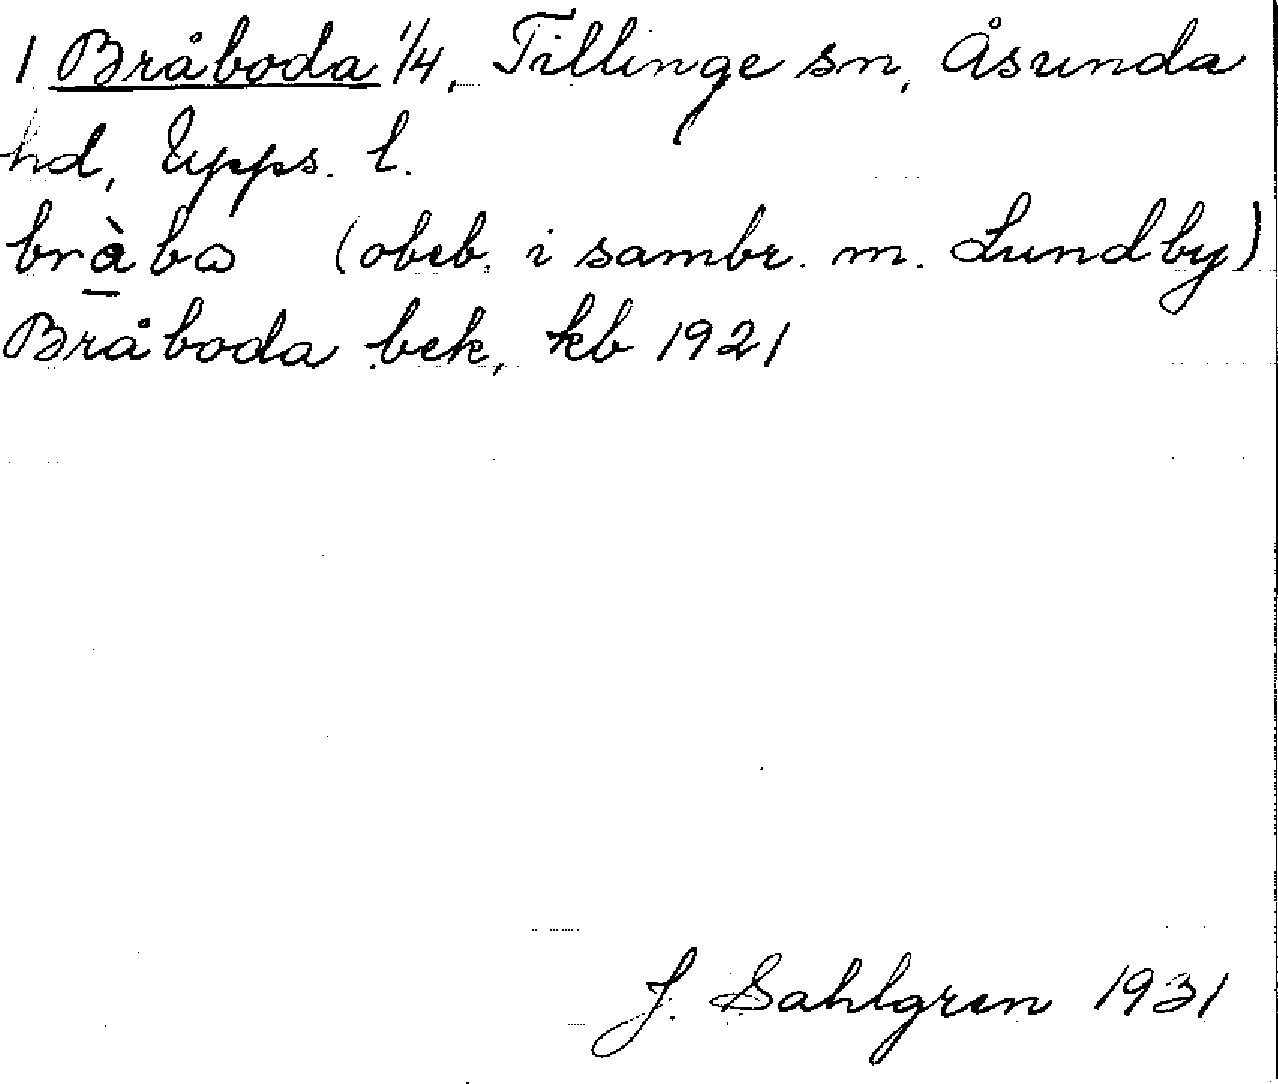 1 Bråboda 1/4, Tillinge sn, Åsunda
hd, Upps. l.
bràbω (obeb. i sambr. m. Lundby)
Bråboda bek, kb 1921
J. Sahlgren 1931